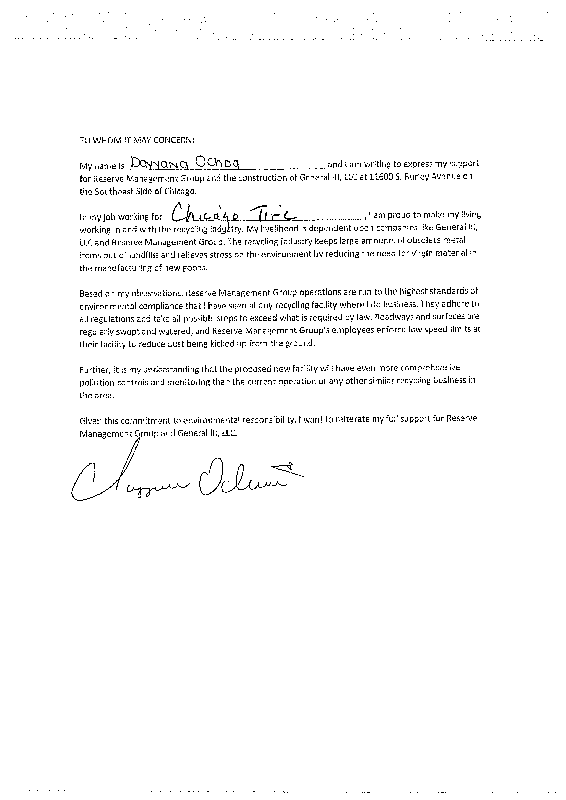 TO WHOM IT MAY CONCERN:
My name is Dayyana Ochoa and I am writing to express my support
for Reserve Management Group and the construction of General III, LLC at 11600 S. Burley Avenue on
the Southeast Side of Chicago.
In my job working for Chicago Tire, I am proud to make my living
working in and with the recycling industry. My livelihood is dependent upon companies like General III,
LLC and Reserve Management Group. The recycling industry keeps large amounts of obsolete metal
items out of landfills and relieves stress on the environment by reducing the need for virgin material in
the manufacturing of new goods.
Based on my observations, Reserve Management Group operations are run to the highest standards of
environmental compliance that I have seen at any recycling facility where I do business. They adhere to
all regulations and take all possible steps to exceed what is required by law. Roadways and surfaces are
regularly swept and watered, and Reserve Management Group's employees enforce low speed limits at
their facility to reduce dust being kicked up from the ground.
Further, it is my understanding that the proposed new facility will have even more comprehensive
pollution controls and monitoring than the current operation or any other similar recycling business in
the area.
Given this commitment to environmental responsibility, I want to reiterate my full support for Reserve
Management Group and General III, LLC.